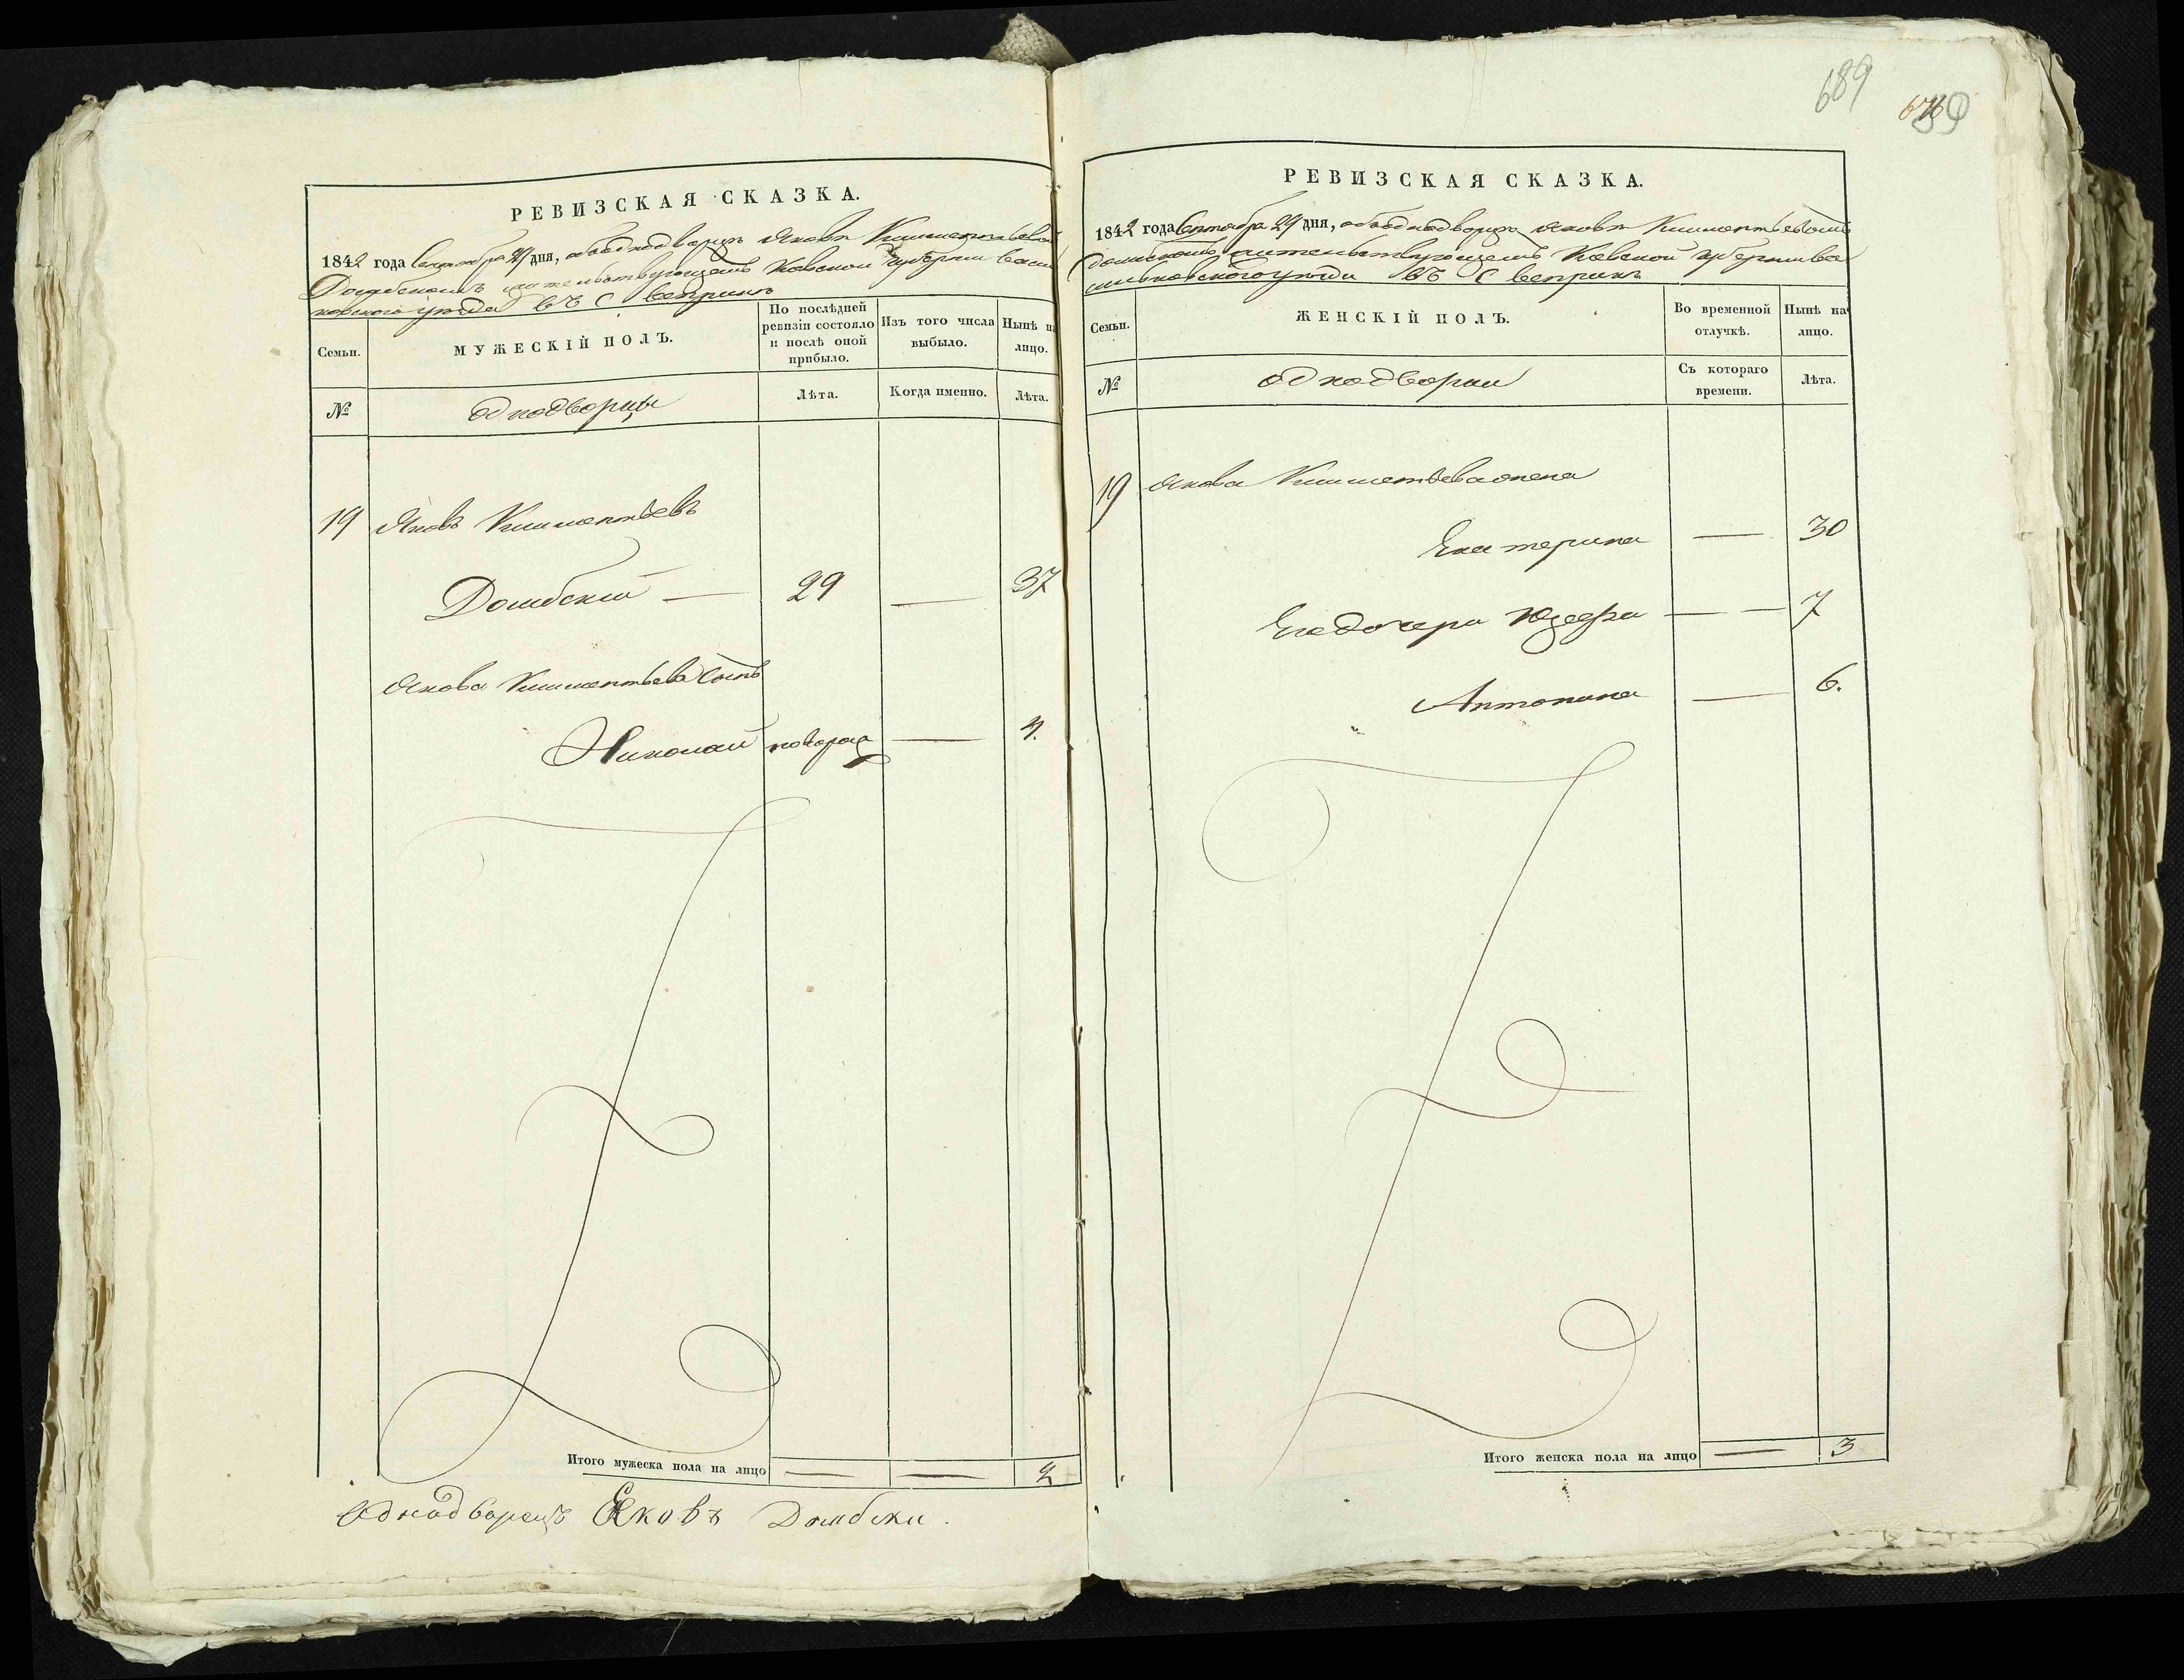 689
РЕВИЗСКАЯ СКАЗКА.
1842 года Сентября 29 дня, объ однодворцѣ Яковѣ Климентьевѣ
Домбскомъ жительствующемъ Кевской губерніи Васи
ковского уѣзда въ С Веприкѣ
Семьи.
МУЖЕСКІЙ ПОЛЪ.
По послѣдней ревизіи состояло и послѣ оной прибыло.
Изъ того числа выбыло.
Нынѣ на лицо.
№
однодворцы
Лѣта.
Когда именно.
Лѣта.
19 Яковъ Климентьевъ
Домбскій — 29 — 37
Якова Климентьева сынъ
Николай новорож —
Итого мужеска пола на лицо — — 2
Однодворецъ Яковъ Домбски.
РЕВИЗСКАЯ СКАЗКА.
1842 года Сентября 29 дня, объ однодворцѣ Яковѣ Климентьевомъ
Домбскомъ жительствующемъ Кевской губерніи Ва
сильковского уѣзда въ С Веприкѣ
Семьи.
ЖЕНСКІЙ ПОЛЪ.
Во временной отлучкѣ.
Нынѣ на лицо.
№
однодворки
Съ котораго времени.
Лѣта.
19 Якова Климентьева жена
Екатерина — 30
Его дочери Юзефа — — 7
Антонина — 6.
Итого женска пола на лицо — 3